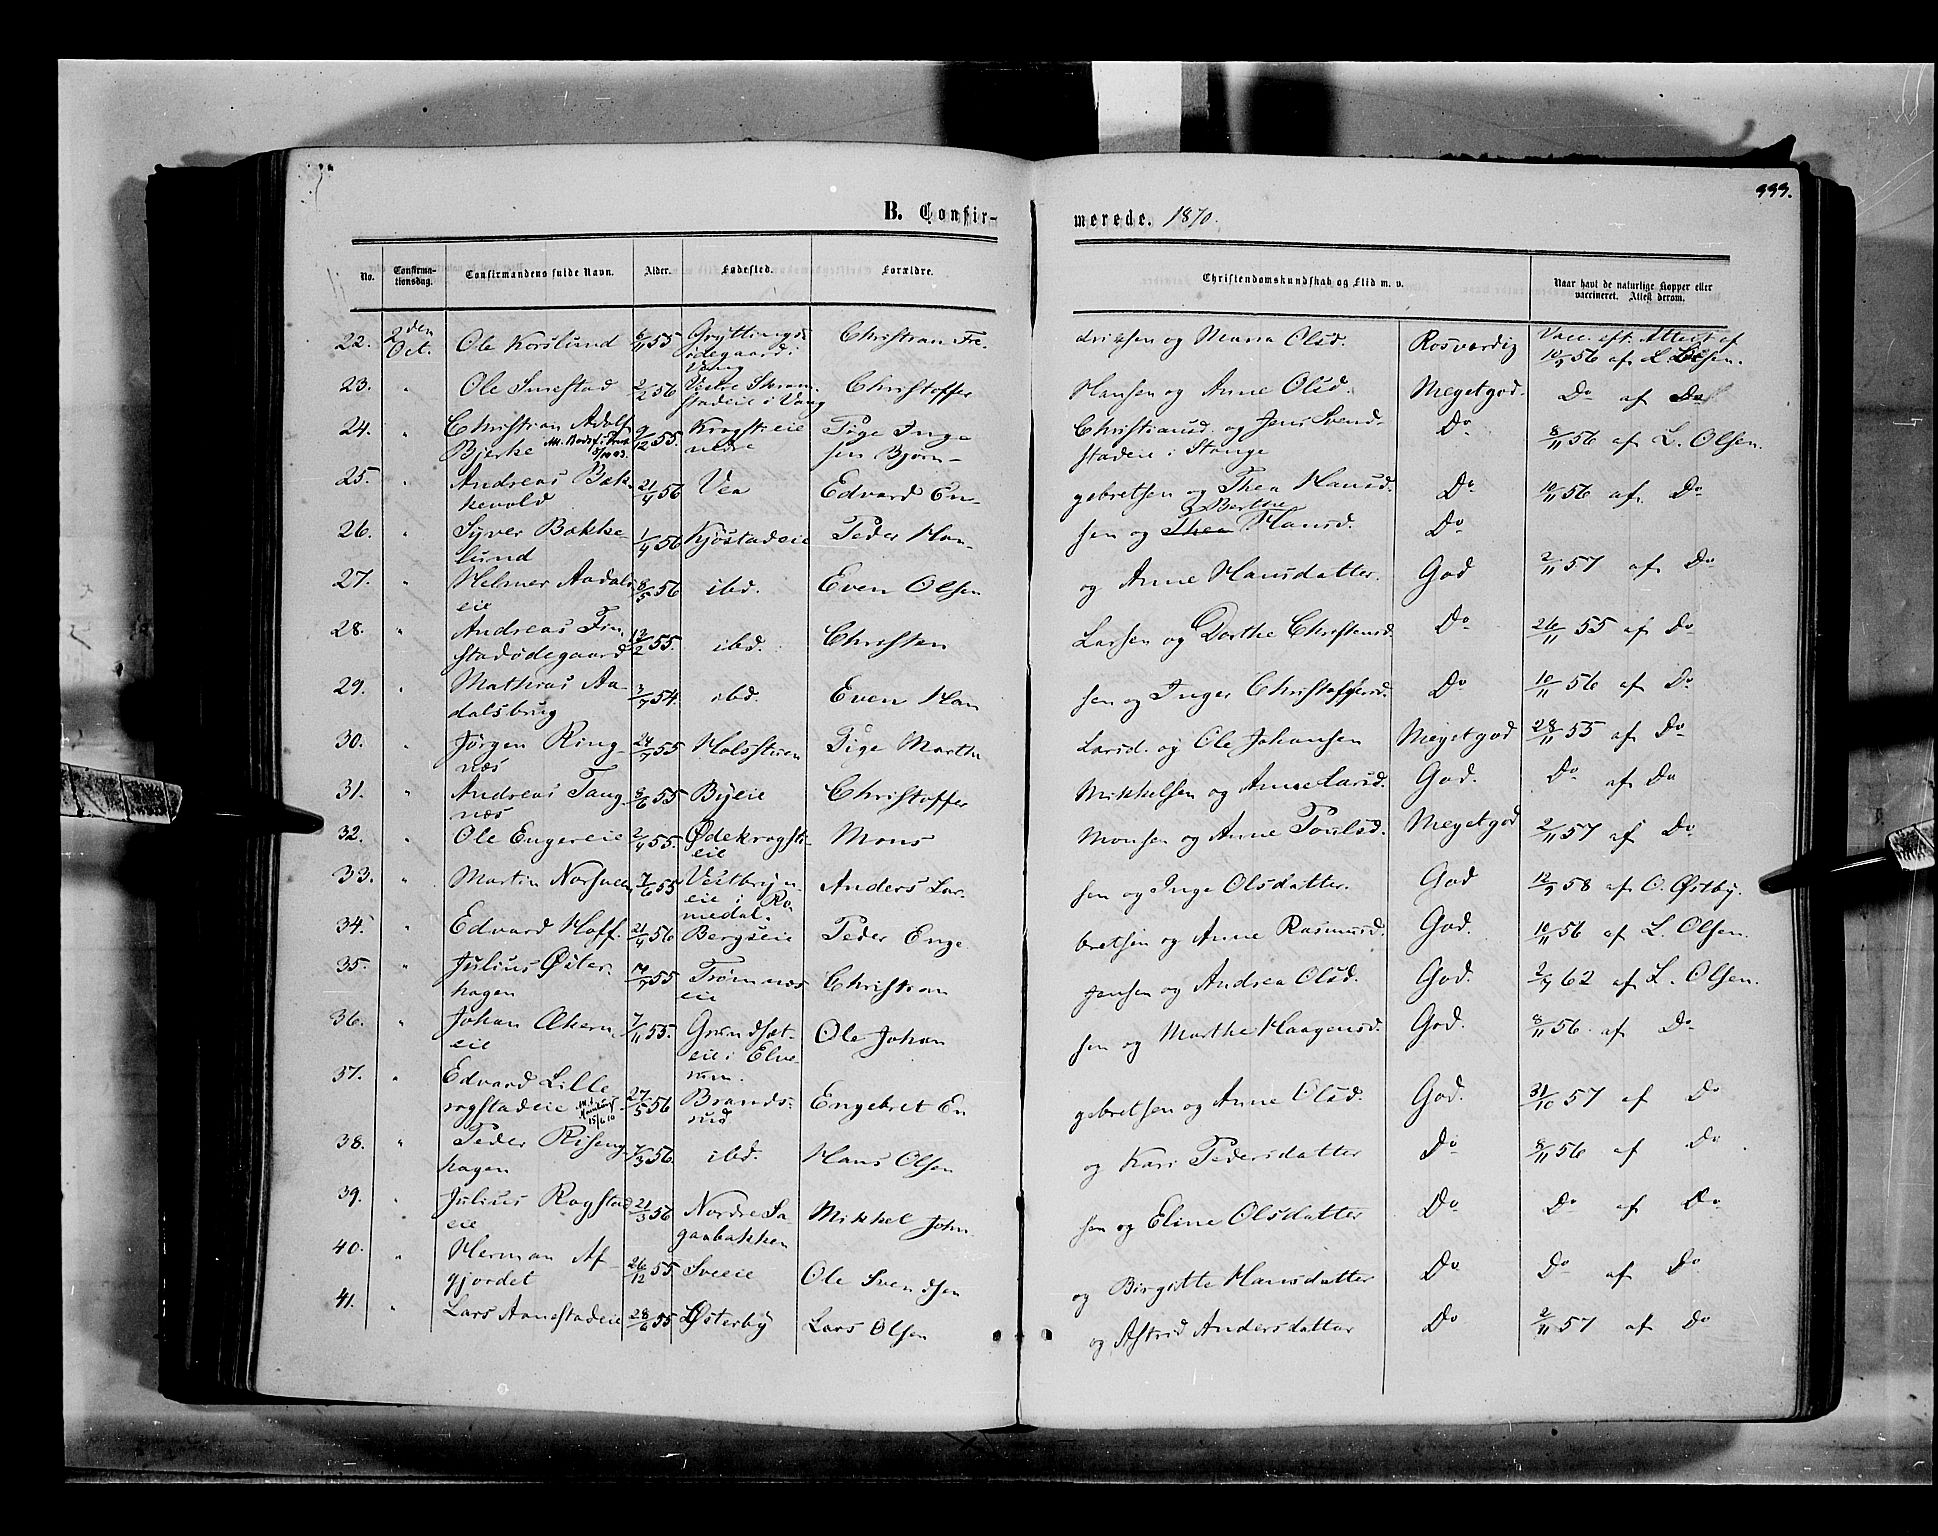 333.
B. Confir- merede. 1870.
No. Confirma- tionsdag. Confirmandens fulde Navn. Alder. Fødested. Forældre. Christendomskundskab og Flid m. v. Naar havt de naturlige Kopper eller vaccineret. Attest derom.
22. 2den Oct. Ole Korslund 6/11 55 Gryttings- ødegaard i Vang Christian Fre- driksen og Maria Olsd. Rosværdig Vacc. eft. Attest af 10/9 56 af L Olsen.
23. " Ole Smestad 2/2 56 Vestre Skram- stadeie i Vang Christoffer Hansen og Anne Olsd. Meget god. Do af Do
24. " Christian Adolf Bjerke 9/12 55. Krogstieie nedre Pige Inge Christiansd. og Jens Svend- sen Bjørn- stadeie i Stange Do 8/11 56 af L. Olsen.
25. " Andreas Bæk- kevold 21/4 56 Vea Edvard En- gebretsen og Thea Hansd. Do 10/11 56 af Do
26. " Syver Bakke- lund 1/4 56 Kjøstadeie Peder Han- sen og Thea Berthe Hansd. Do
27. " Helmer Aadals- eie 8/5 56 ibd. Even Olsen og Anne Hansdatter. God 2/11 57 af Do
28. " Andreas Fin- stadødegaard 13/2 55. ibd. Christen Larsen og Dorthe Christensd. Do 26/11 55 af Do
29. " Mathias Aa- dalsbrug 3/7 54. ibd. Even Han- sen og Inger Christoffersd. Do 10/11 56 af Do
30. " Jørgen Ring- næs 24/7 55 Holsstuen Pige Marthe Larsd. og Ole Johansen Meget god 28/11 55 af Do
31. " Andreas Tang- næs 8/6 55 Byeie Christoffer Mikkelsen og Anne Larsd. God. Do af Do
32. " Ole Engereie 2/4 55. Ødekrogsti- eie Mons Monsen og Anne Poulsd. Meget god 2/11 57 af Do
33. " Martin Norsveen 7/6 55 Vestbryn- eie i Ro- medal. Anders Lar- sen og Inge Olsdatter. God 12/9 58 af O. Østby.
34. " Edvard Hoff. 21/4 56 Bergseie Peder Enge- bretsen og Anne Rasmusd. God. 10/11 56 af L. Olsen.
35. " Julius Øster- hagen 14/7 55 Frømnes- eie Christian Jensen og Andrea Olsd. God. 2/9 62 af L. Olsen.
36. " Johan Ekern- eie 7/11 55. Grundsæt- eie i Elve- rum. Ole Johan- sen og Marthe Haagensd. God. 8/11 56. af Do
37. " Edvard Lille- rogstadeie 27/5 56 Brands- rud Engebret En- gebretsen og Anne Olsd. God. 31/10 57 af Do
38. " Peder Riseng- hagen 7/3 56. ibd. Hans Olsen og Kari Pedersdatter Do 8/11 56 af Do
39. " Julius Rogstad- eie 21/3 56 Nordre Sa- gaabakken Mikkel John- sen og Eline Olsdatter Do Do af Do
40. " Herman Af- gjordet 26/12 55 Sveeie Ole Svendsen og Birgitte Hansdatter Do Do af Do
41. " Lars Aanestadeie 28/6 55 Østerby Lars Olsen og Astrid Andersdatter Do 2/11 57 af Do